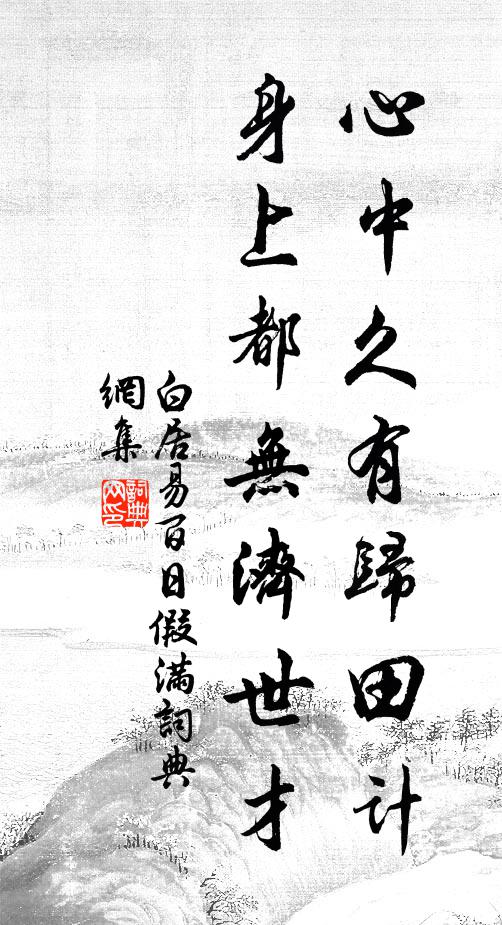 心中久有歸田計
身上都無濟世才
白居易百日假滿詞典
網集
詞典
网印